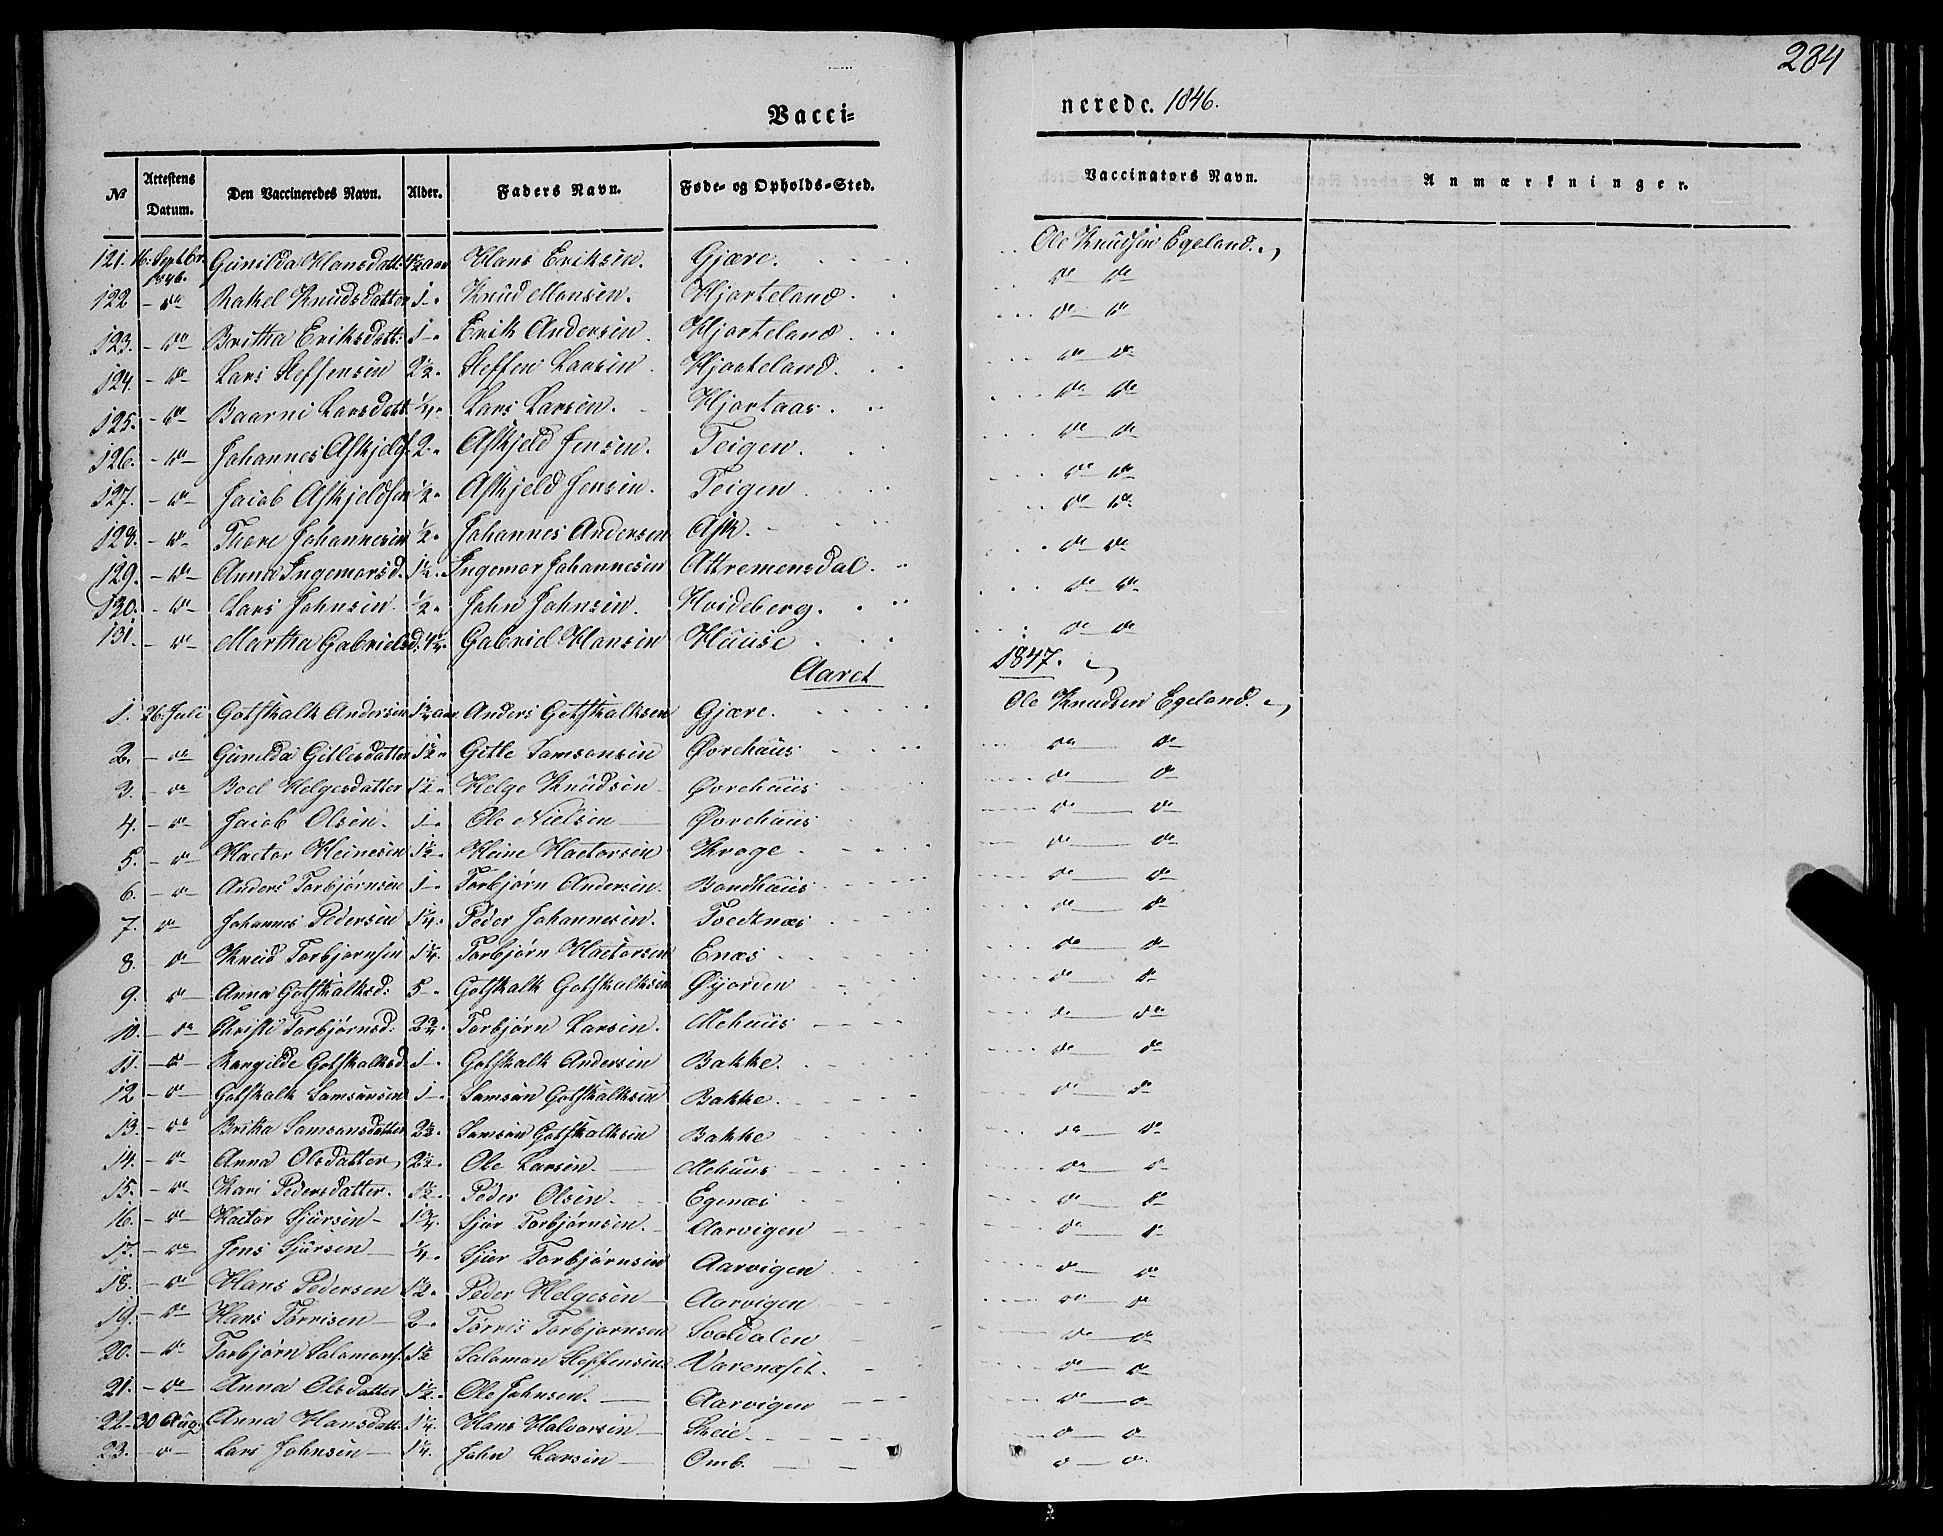 284
Vacci- nerede. 1846.
No Attestens Datum. Den Vaccineredes Navn. Alder. Faders Navn. Føde- og Opholds-Sted. Vaccinators Navn. Anmærkninger.
121. 16. Septbr. 1846. Gunilda Hansdatt: 1½ aar Hans Eriksen. Gjære. Ole Knudsen Egeland.
122 - do Rakel Knudsdatter 1 - Knud Monsen. Hjorteland. do do
123. - do Britha Eriksdatt: 1 - Erik Andersen. Hjorteland. do do
124. - do Lars Steffensen 2½ Steffen Larsen. Hjorteland. do do
125. - do Baarni Larsdatt. ¼ Lars Larsen. Hjortaas. do do
126. - do Johannes Askjelds. 2 Askjeld Jensen. Teigen. do do
127. - do Jacob Askjeldsen ½ Askjeld Jensen. Teigen. do do
128. - do Thore Johannesen ½ Johannes Andersen Ask. do do
129. - do Anna Ingemarsd. 1½ Ingemar Johannesen Attremensdal. do do
130. - do Lars Johnsen. ½ John Johnsen. Hvideberg. do do
131. - do Martha Gabrielsd: Gabriel Hansen Huuse do do
Aaret 1847.
1. 26. Juli Gotskalk Andersen 1¼ aar. Anders Gotskalksen Gjære. Ole Knudsen Egeland.
2. - do Gunilda Gitlesdatter 1½ Gitle Samsonsen Øvrehuus do do
3. - do Boel Helgesdatter 1½ Helge Knudsen Øvrehuus do do
4. - do Jacob Olsen. 1 - Ole Nielsen Øvrehuus do do
5. - do Hactor Heinesen 1½ Heine Hactorsen Krage. do do
6. - do Anders Torbjørnsen 1 - Torbjørn Andersen. Bondhuus do do
7. do Johannes Pedersen 1¼ Peder Johannesen. Tvedtnæs do do
8. do Knud Torbjørnsen 1¼ Torbjørn Hactorsen Enæs do do
9. do Anna Gotskalksd: 5 - Gotskalk Gotskalksen Øyjorden do do
10. - do Christi Torbjørnsd: 2¾ Torbjørn Larsen. Mehuus do do
11. - do Rangilde Gotskalksd 1 - Gotskalk Andersen Bakke. do do
12 - do Gotskalk Samsonsen 1 - Samson Gotskalksen Bakke. do do
13. - do Britha Samsonsdatter Samson Gotskalksen Bakke do do
14. - do Anna Olsdatter, 2½ Ole Larsen. Mehuus do do
15. - do Kari Pedersdatter. 1½ Peder Olsen. Egenæs do do
16. - do Hactor Sjursen 1¾ Sjur Torbjørnsen. Aarvigen do do
17. - do Jens Sjursen ¼ Sjur Torbjørnsen Aarvigen do do
18. - do Hans Pedersen 1½ Peder Helgesen Aarvigen do do
19. - do Hans Tørrisen 2 Tørris Torbjørnsen Svoldalen do do
20. - do Torbjørn Salomons. 1½ Salomon Steffensen Varendset. do do
21. - do Anna Olsdatter 1½ Ole Johnsen. Aarvigen do do
22. 30 Aug. Anna Hansdatt. 1¼ Hans Halvorsen Skeie do do
23. do Lars Johnsen 1¼ John Larsen Omb. do do